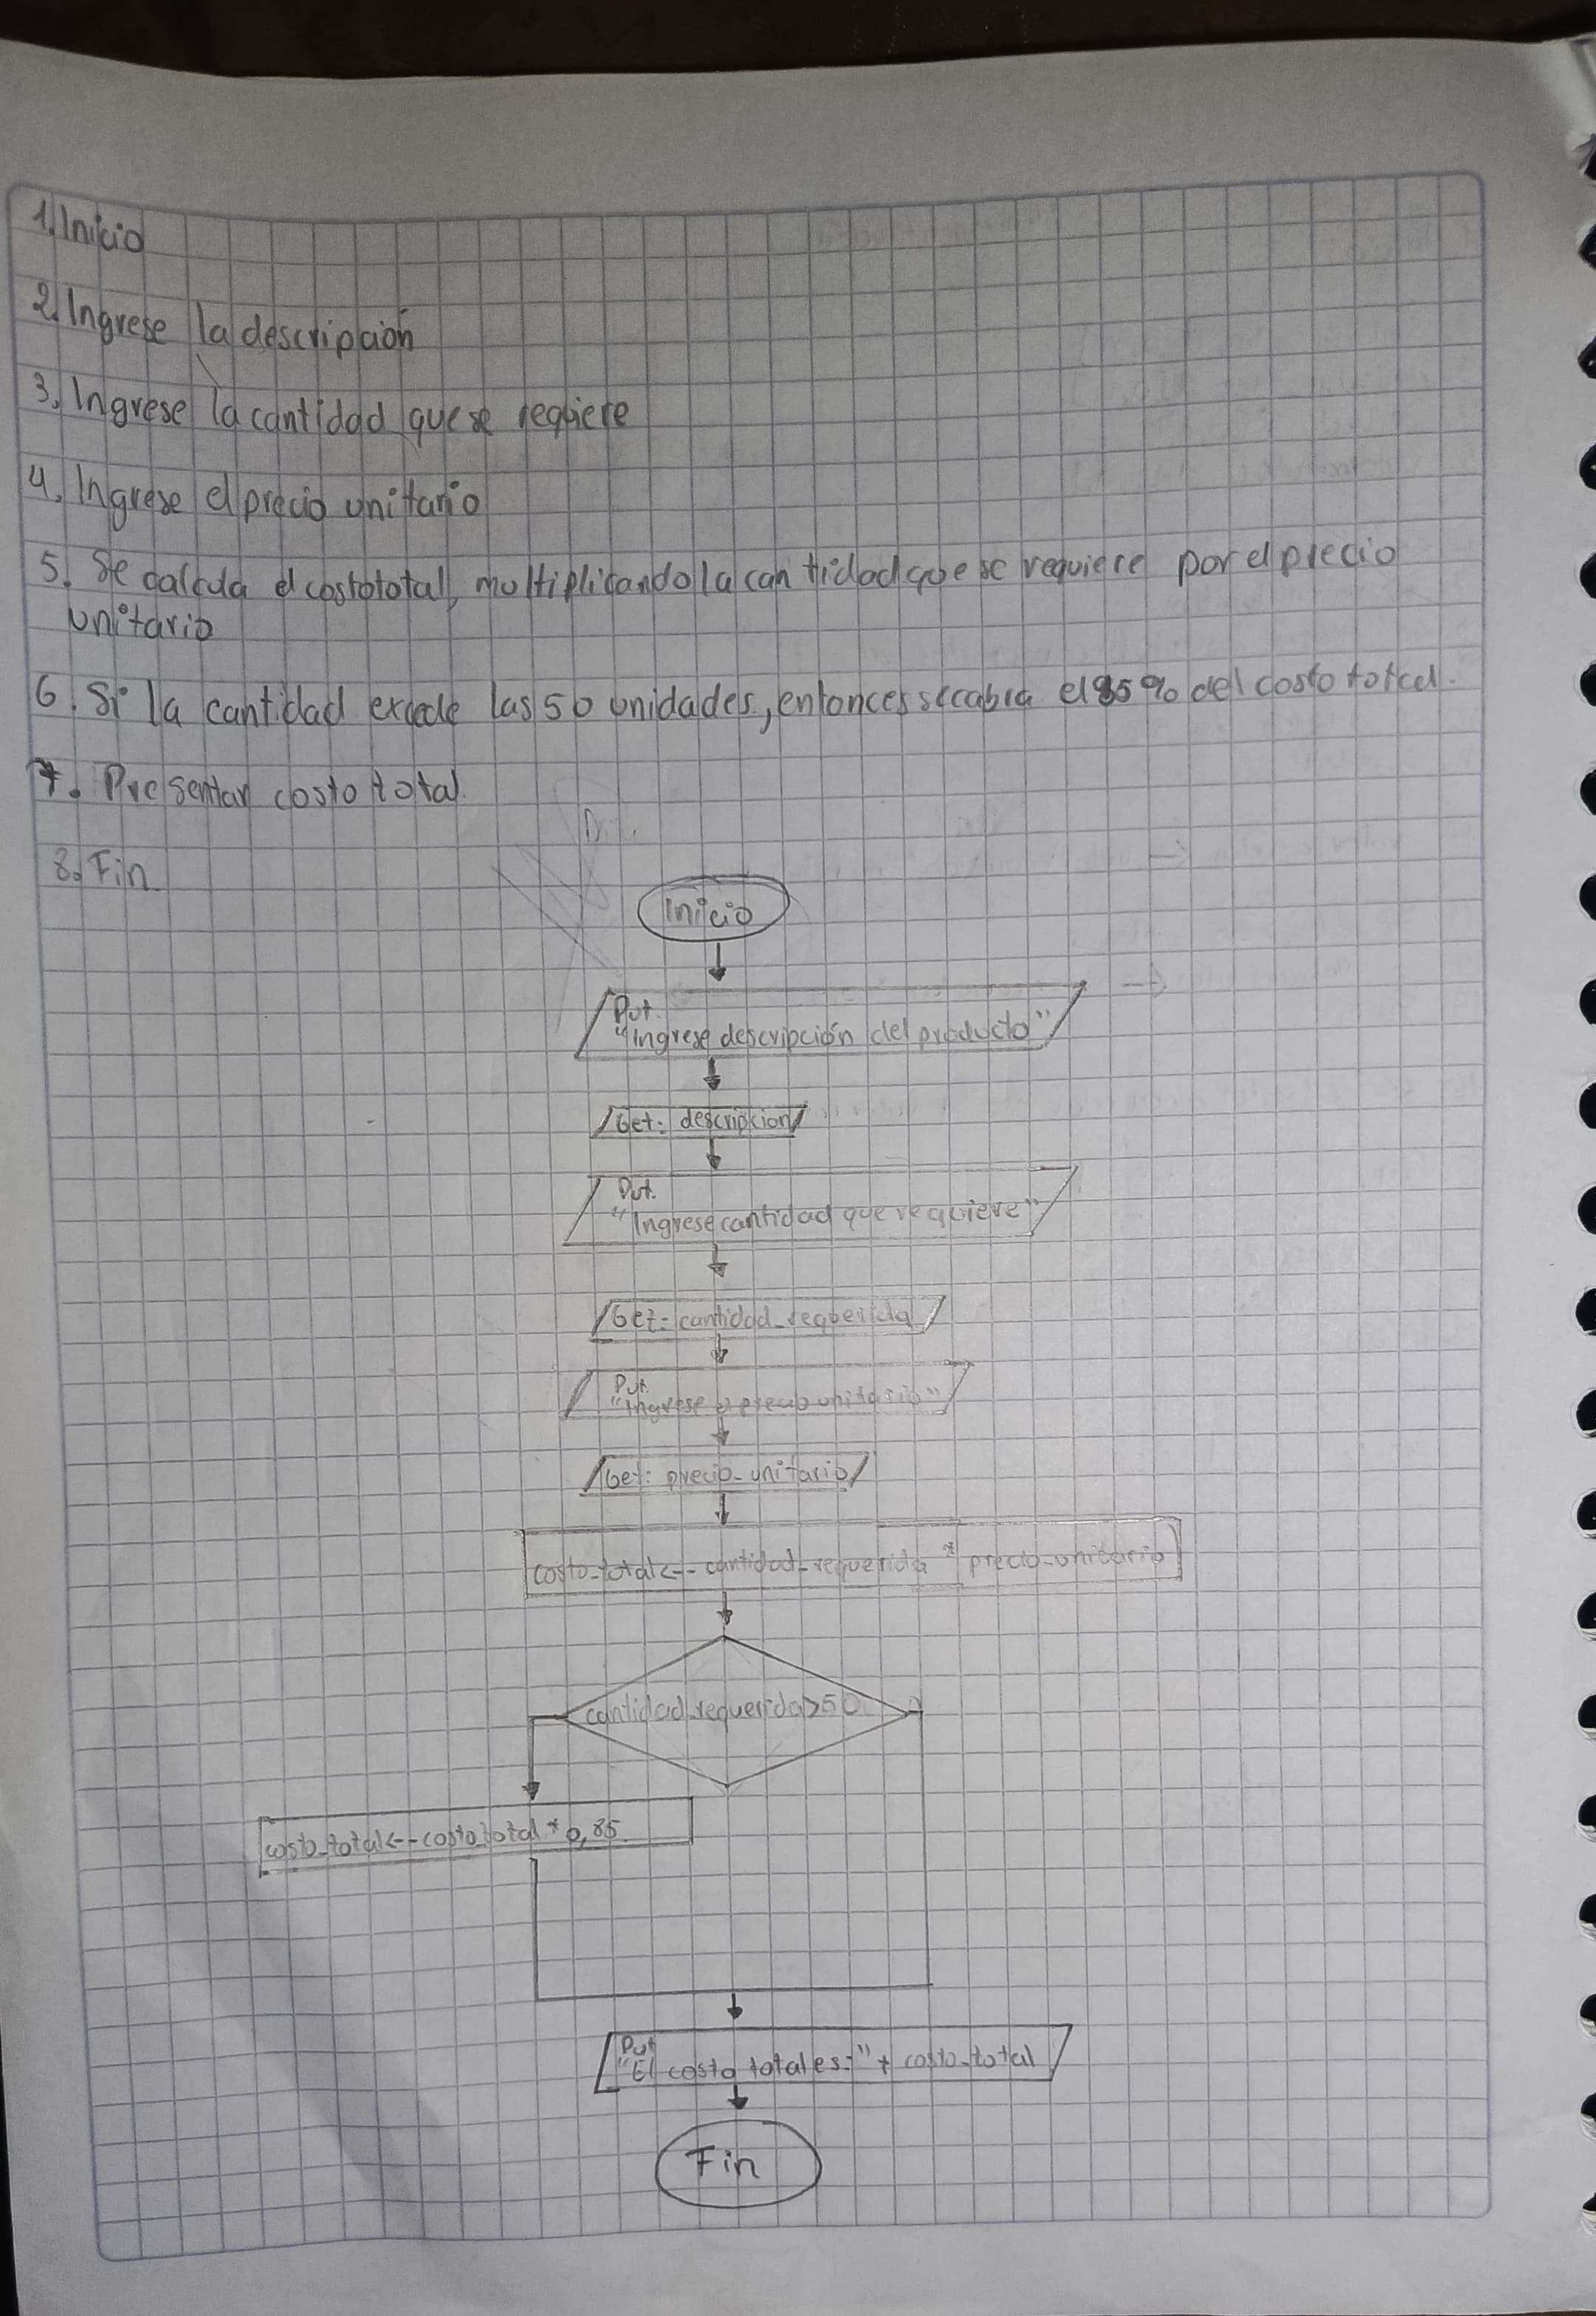 1. Inicio
2. Ingrese la descripción
3. Ingrese la cantidad que se requiere
4. Ingrese el precio unitario
5. Se calcula el costo total, multiplicando la cantidad que se requiere por el precio
unitario
6. Si la cantidad excede las 50 unidades, entonces se cabra el 85% del costo total.
7. Presentar costo total.
8. Fin
Inicio
Put.
"Ingrese descripción del producto"
Get: descripcion
Put.
"Ingrese cantidad que requiere"
Get: cantidad_requerida
Put.
"Ingrese el precio unitario"
Get: precio_unitario
costo_total<-- cantidad_requerida * precio_unitario
cantidad_requerida>50
costo_total<--costo_total * 0,85
Put
"El costo total es:" + costo_total
Fin